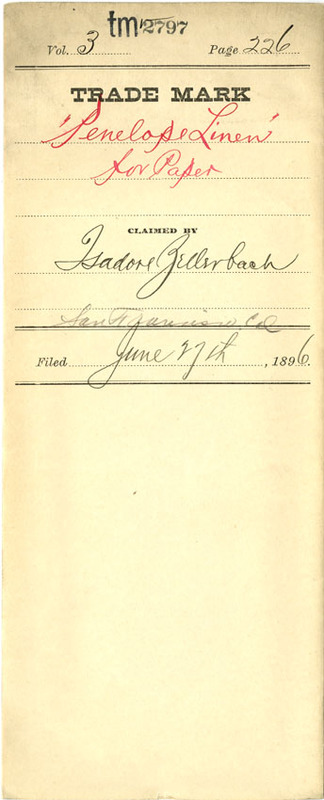 tm 2797
Vol. 3 Page 226
TRADE MARK
"Penelope Linen"
for Paper
CLAIMED BY
Isadore Zellerbach
San Francisco Cal
Filed June 27th, 1896.